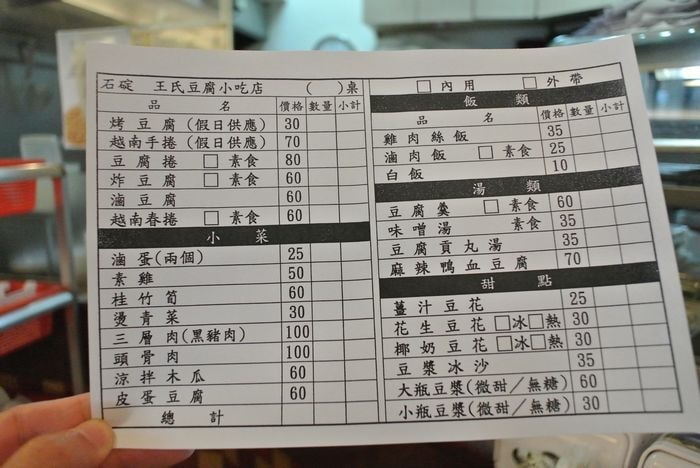 石碇 王氏豆腐小吃店 ( )桌
品 名 價格 數量 小計
烤豆腐(假日供應) 30
越南手捲(假日供應) 70
豆腐捲 □ 素食 80
炸豆腐 □ 素食 60
滷豆腐 60
越南春捲 □ 素食 60
小 菜
滷蛋(兩個) 25
素雞 50
桂竹筍 60
燙青菜 30
三層肉(黑豬肉) 100
頭骨肉 100
涼拌木瓜 60
皮蛋豆腐 60
總 計
□ 內用 □ 外帶
飯 類
品 名 價格 數量 小計
雞肉絲飯 35
滷肉飯 □ 素食 25
白飯 10
湯 類
豆腐羹 □ 素食 60
味噌湯 素食 35
豆腐貢丸湯 35
麻辣鴨血豆腐 70
甜 點
薑汁豆花 25
花生豆花 □冰□熱 30
椰奶豆花 □冰□熱 30
豆漿冰沙 35
大瓶豆漿(微甜/無糖) 60
小瓶豆漿(微甜/無糖) 30